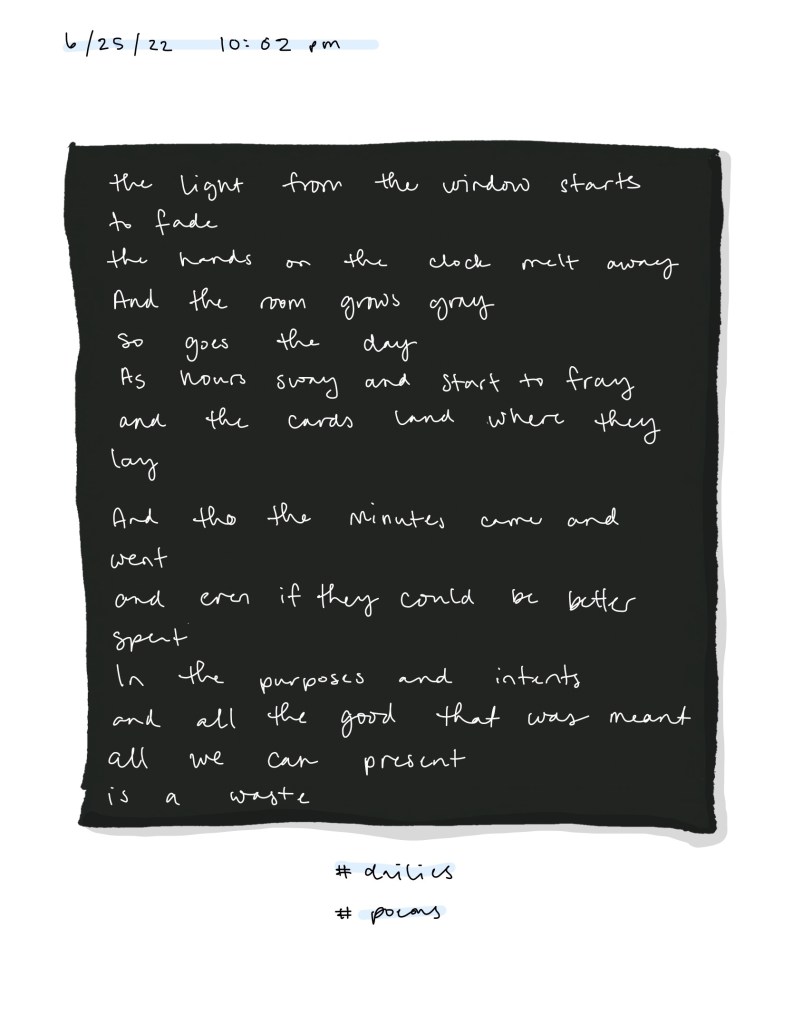 6/25/22 10:02 pm
the light from the window starts
to fade
the hands on the clock melt away
And the room grows gray
So goes the day
As hours sway and start to fray
and the cards land where they
lay
And tho the minutes came and
went
and even if they could be better
spent
In the purposes and intents
and all the good that was meant
all we can present
is a waste
# dailies
# poems